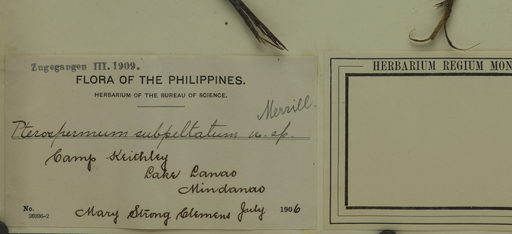 Zugegangen III. 1909.
FLORA OF THE PHILIPPINES.
HERBARIUM OF THE BUREAU OF SCIENCE.
Merrill.
Pterospermum subpeltatum n. sp.
Camp Keithley
Lake Lanao
Mindanao
No. Mary Strong Clemens July 1906
HERBARIUM REGIUM MON